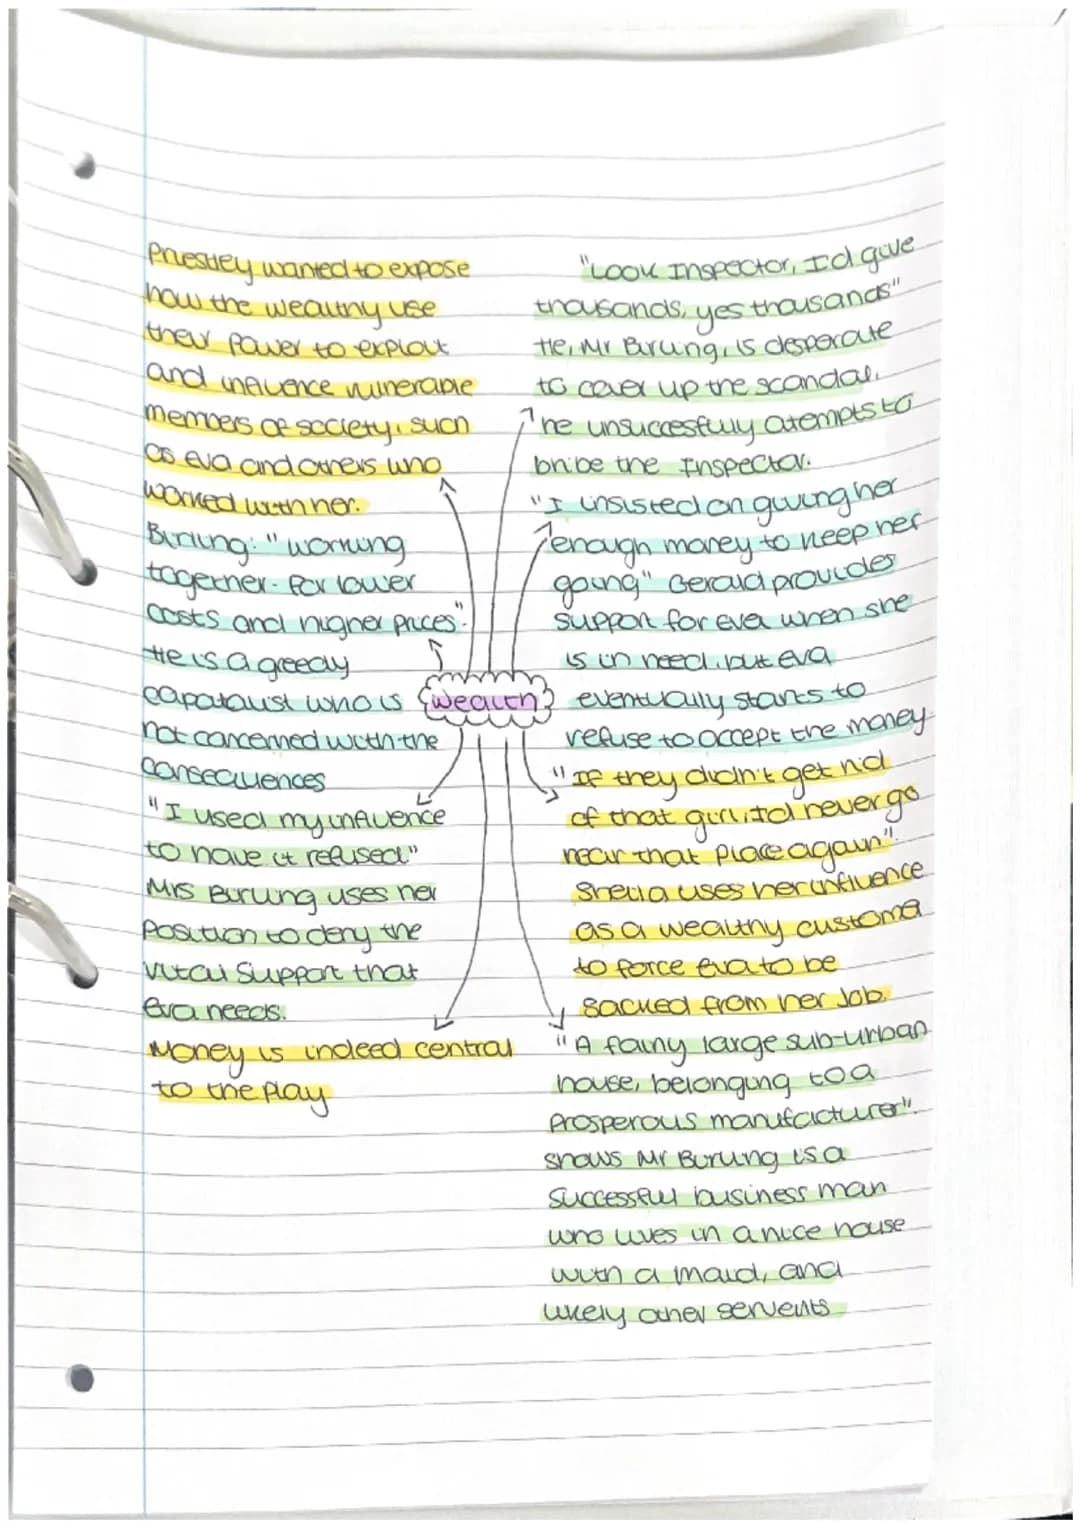 Priestley wanted to expose
how the wealthy use
their power to exploit
and influence vulnerable
members of society, such
as eva and others who
worked with her.
Birling: "working
together - for lower
costs and higher prices".
He is a greedy
capatalist who is
not concerned with the
consequences
"I used my influence
to have it refused"
Mrs Burling uses her
position to deny the
vital support that
Eva needs.
Money is indeed central
to the play
wealth
"Look Inspector, I'd give
thousands, yes thousands"
He, Mr Birling, is desperate
to cover up the scandal.
he unsuccesfully atempts to
bribe the Inspector.
"I insisted on giving her
enough money to keep her
going" Gerald provides
support for eva when she
is in need, but eva
eventually starts to
refuse to accept the money
"If they didn't get rid
of that girl, I'd never go
near that place again".
Sheila uses her influence
as a wealthy customer
to force eva to be
sacked from her Job.
"A fairly large sub-urban
house, belonging to a
prosperous manufacturer".
shows Mr Burling is a
successful business man
who lives in a nice house
with a maid, and
likely other servents